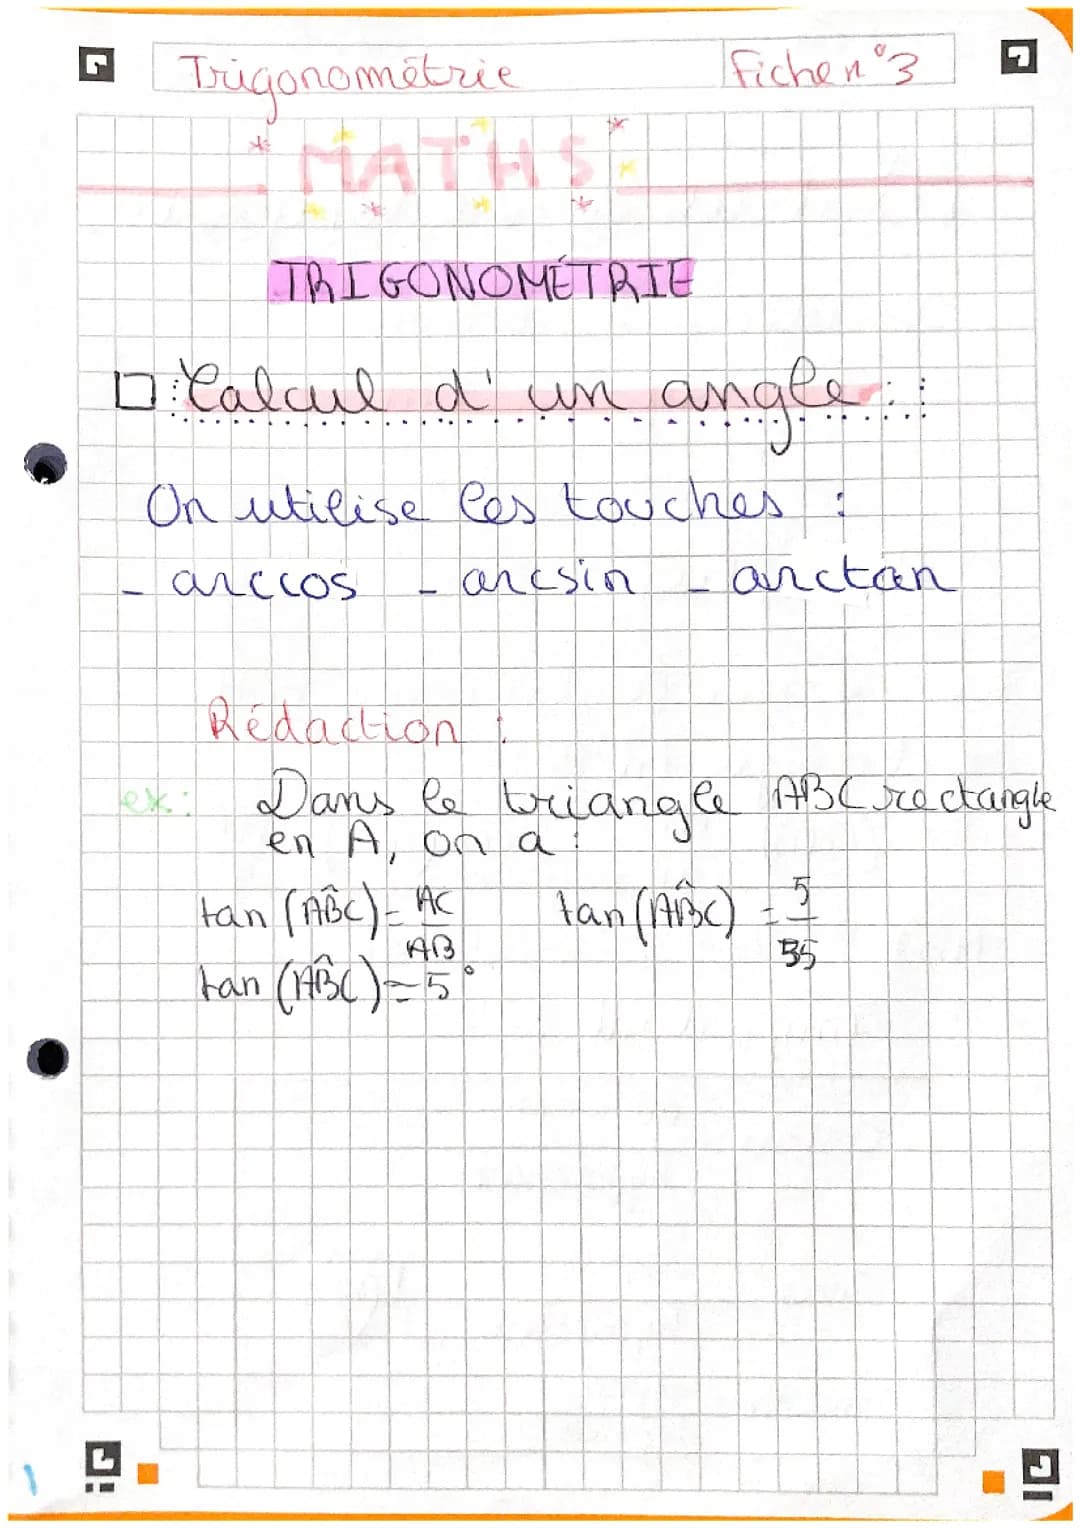 Trigonométrie
Fiche n°3
MATHS
TRIGONOMÉTRIE
Calcul d'un angle :
On utilise les touches :
- arccos - arcsin - arctan
Rédaction :
ex: Dans le triangle ABC rectangle
en A, on a :
tan (AB̂C) = AC/AB tan (AB̂C) = 5/55
tan (AB̂C) ≈ 5°